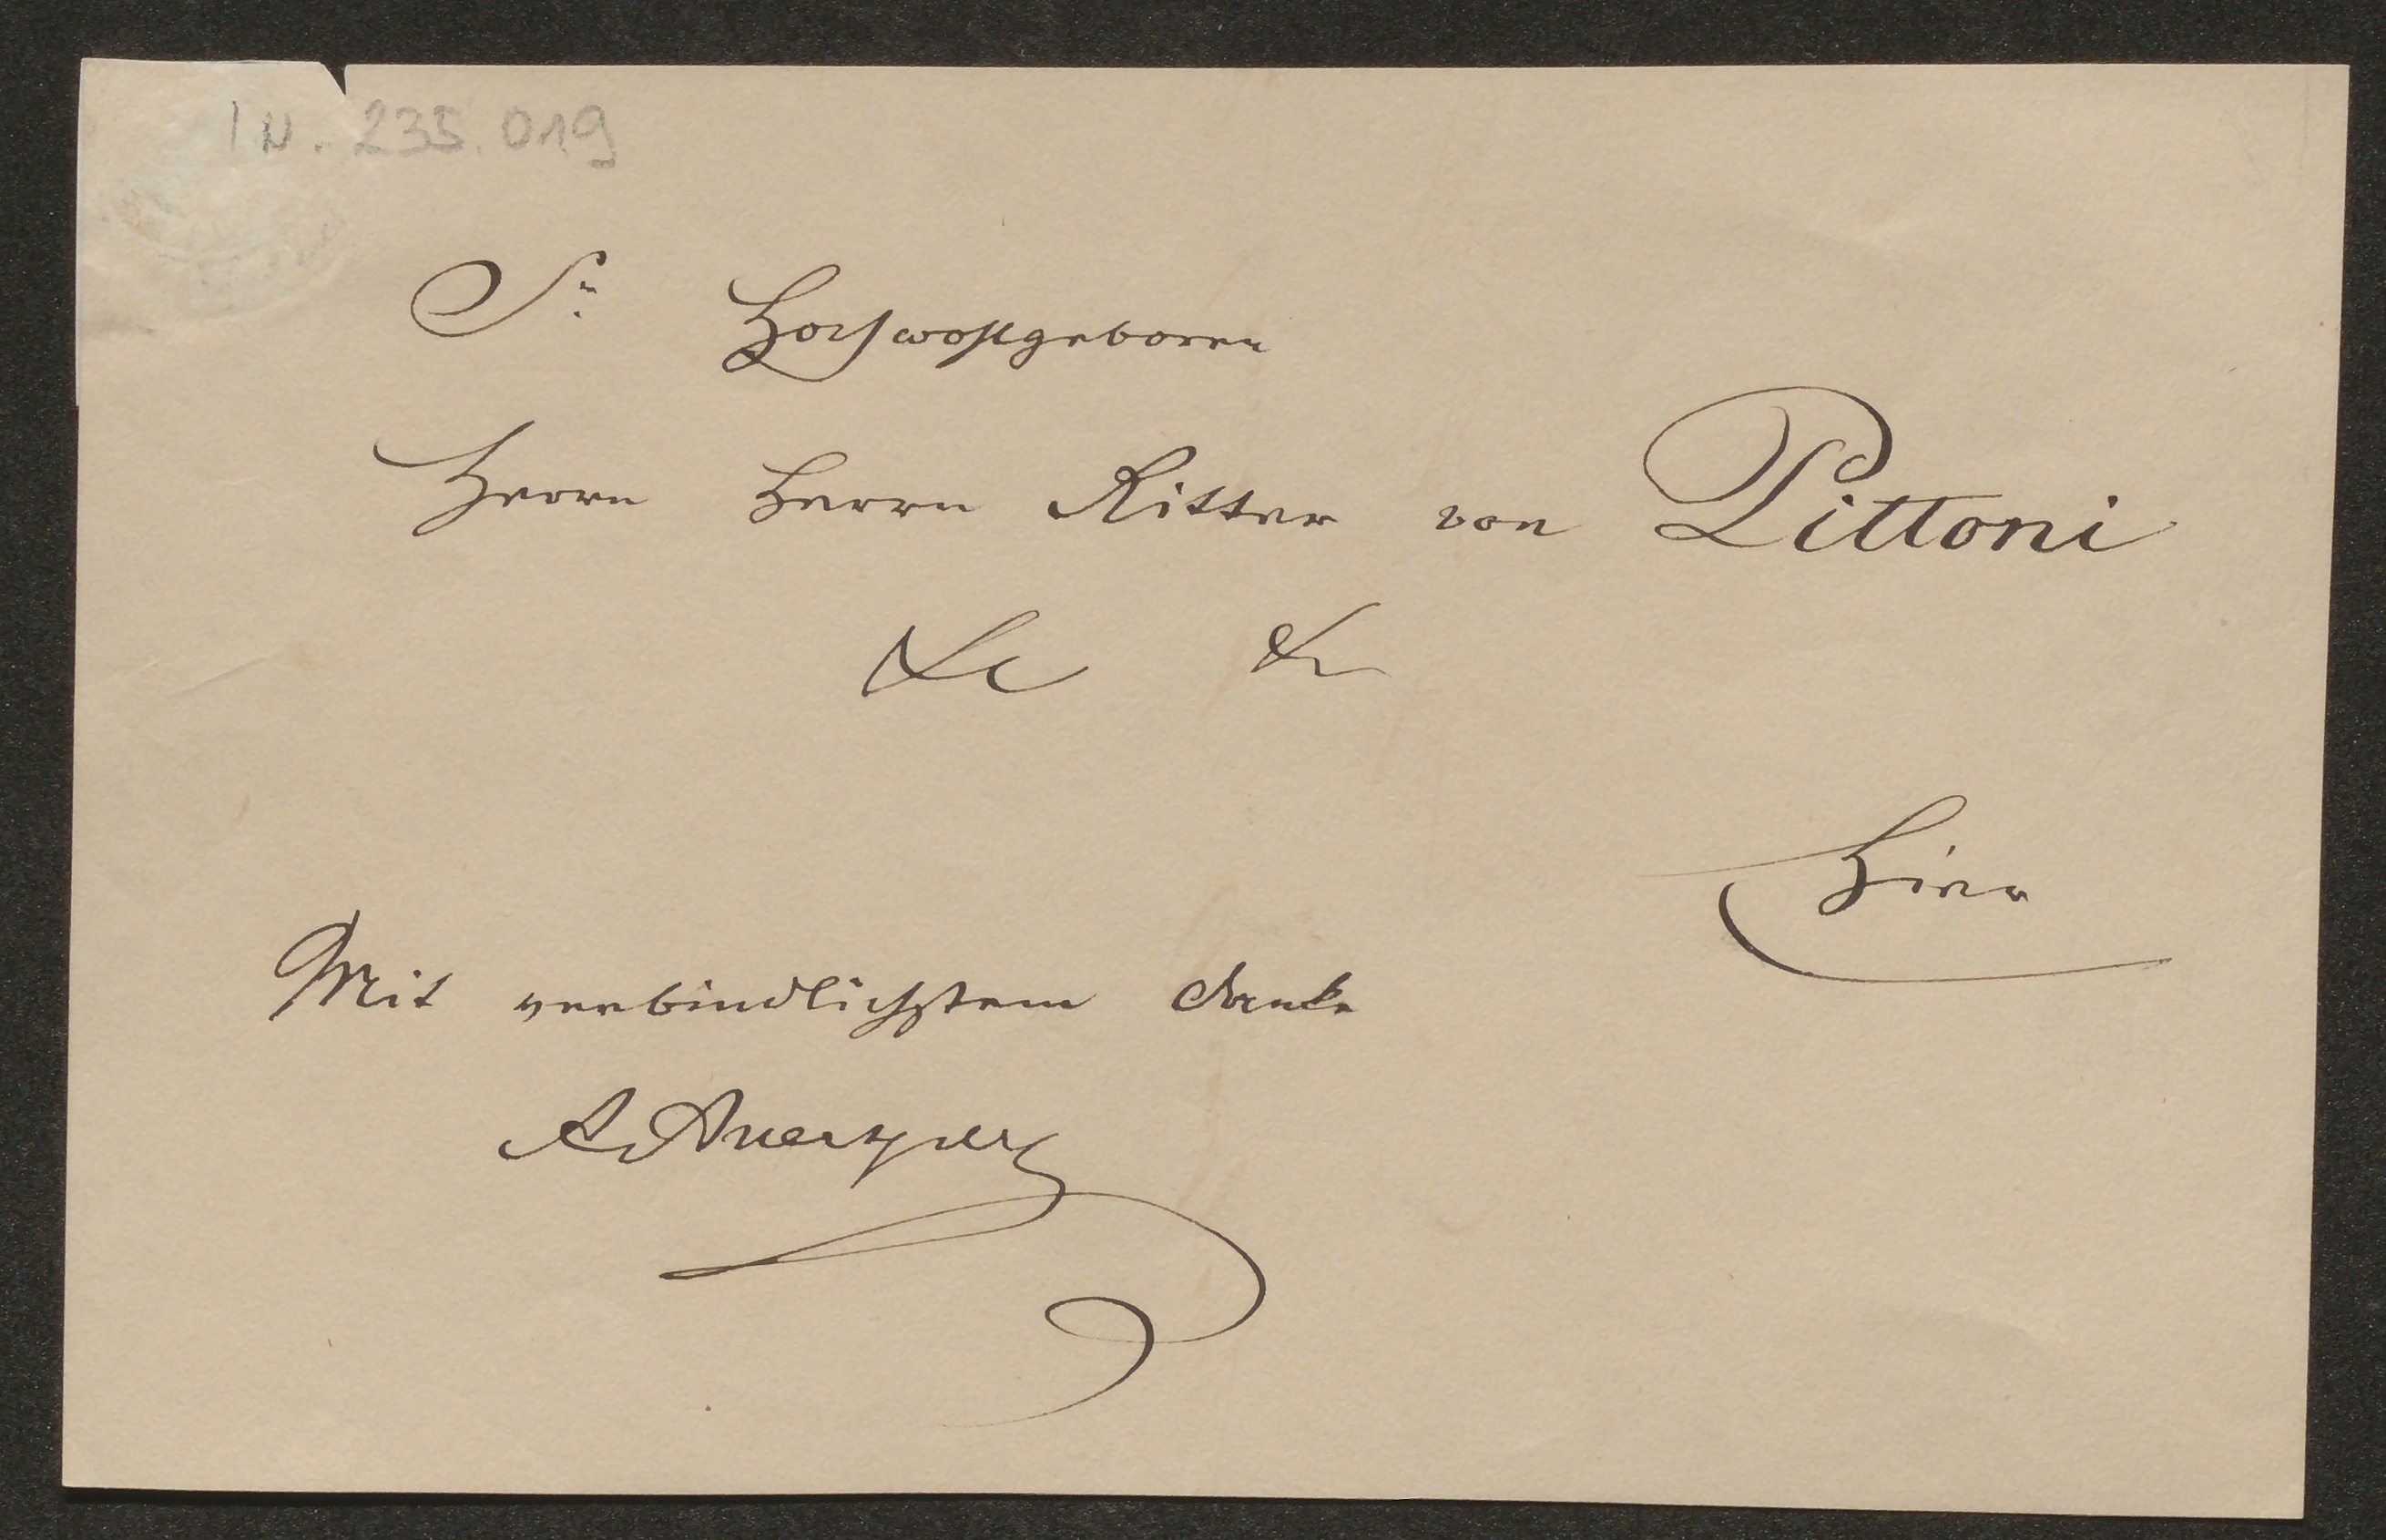 IN. 235.019
Sr. Hochwohlgeboren
Herrn Herrn Ritter von Pittoni
&c &c
Hier
Mit verbindlichstem Danke
A. Auersperg